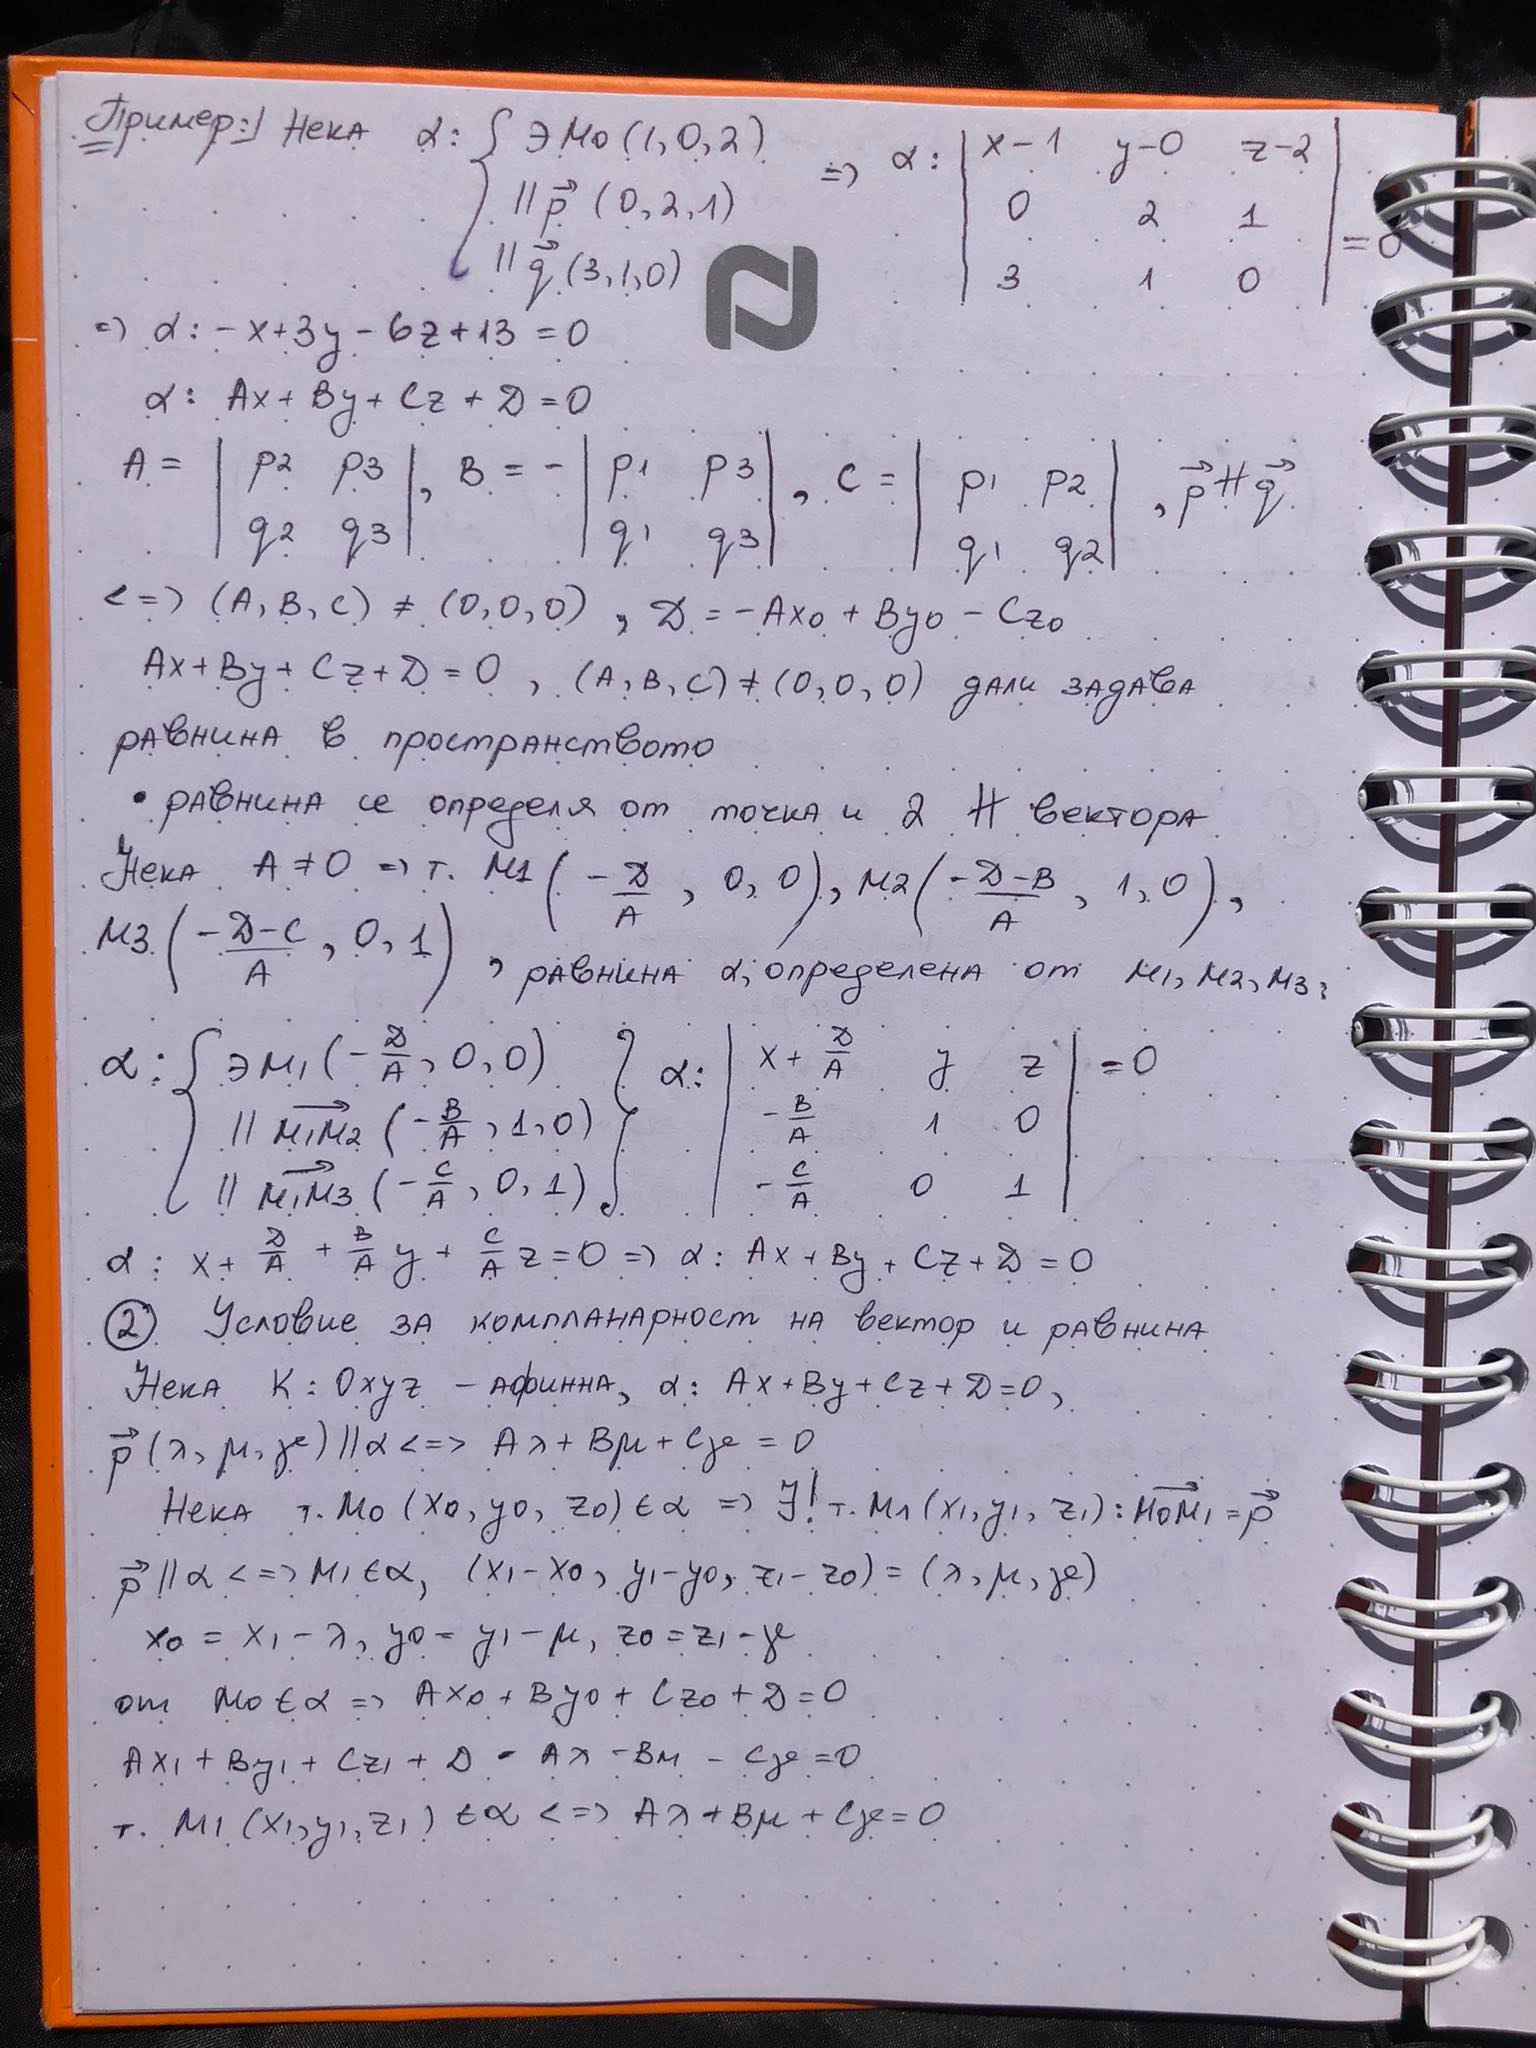 Пример:| Нека α: { ∋ M0 (1, 0, 2) || p⃗ (0, 2, 1) || q⃗ (3, 1, 0) => α: | x-1 y-0 z-2 | 0 2 1 | 3 1 0 | = 0
=> α: -x+3y-6z+13=0
α: Ax+By+Cz+D=0
A = | p2 p3 | q2 q3 |, B = - | p1 p3 | q1 q3 |, C = | p1 p2 | q1 q2 |, p⃗ ∦ q⃗
<=> (A, B, C) ≠ (0, 0, 0), D = -Ax0 + By0 - Cz0
Ax+By+Cz+D=0, (A, B, C) ≠ (0, 0, 0) дали задава
равнина в пространството
• равнина се определя от точка и 2 ∦ вектора
Нека A ≠ 0 => т. M1 (-D/A, 0, 0), M2 ((-D-B)/A, 1, 0),
M3 ((-D-C)/A, 0, 1), равнина α, определена от M1, M2, M3:
α: { ∋ M1 (-D/A, 0, 0) || M1M2⃗ (-B/A, 1, 0) || M1M3⃗ (-C/A, 0, 1) } α: | x+D/A y z | -B/A 1 0 | -C/A 0 1 | = 0
α: x + D/A + B/A y + C/A z = 0 => α: Ax+By+Cz+D=0
② Условие за компланарност на вектор и равнина
Нека K: Oxyz - афинна, α: Ax+By+Cz+D=0,
p⃗ (λ, μ, ϰ) || α <=> Aλ+Bμ+Cϰ=0
Нека т. M0 (x0, y0, z0) ∈ α => ∃! т. M1 (x1, y1, z1): M0M1⃗ = p⃗
p⃗ || α <=> M1 ∈ α, (x1-x0, y1-y0, z1-z0) = (λ, μ, ϰ)
x0 = x1-λ, y0 = y1-μ, z0 = z1-ϰ
от M0 ∈ α => Ax0+By0+Cz0+D=0
Ax1+By1+Cz1+D - Aλ - Bμ - Cϰ=0
т. M1 (x1, y1, z1) ∈ α <=> Aλ+Bμ+Cϰ=0